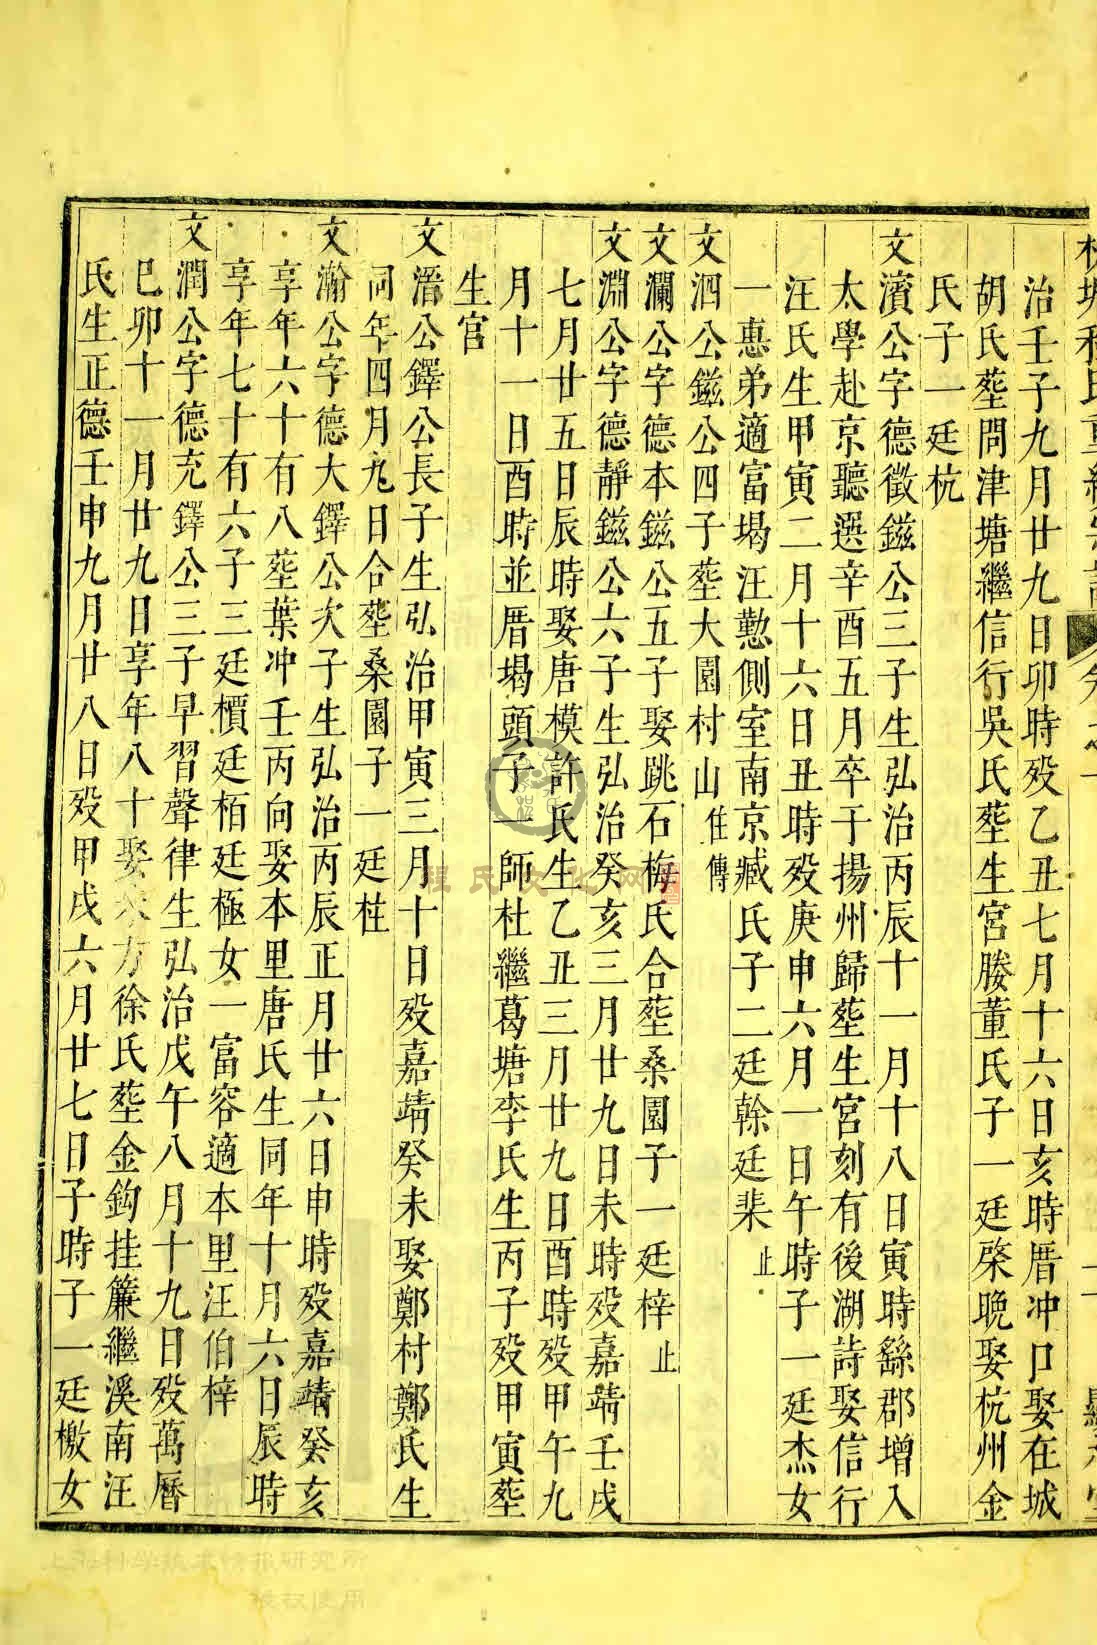 治壬子九月廿九日卯時歿乙丑七月十六日亥時厝冲口娶在城
胡氏塟問津塘繼信行吳氏塟生宮媵董氏子一廷棨晚娶杭州金
氏子一廷杭
文濱公字德徵鎡公三子生弘治丙辰十一月十八日寅時繇郡增入
太學赴京聽選辛酉五月卒于揚州歸塟生宮刻有後湖詩娶信行
汪氏生甲寅二月十六日丑時歿庚申六月一日午時子一廷杰女
一惠弟適富堨汪懃側室南京臧氏子二廷榦廷棐止
文泗公鎡公四子塟大園村山隹傳
文瀾公字德本鎡公五子娶跳石梅氏合塟桑園子一廷梓止
文淵公字德靜鎡公六子生弘治癸亥三月廿九日未時歿嘉靖壬戌
七月廿五日辰時娶唐模許氏生乙丑三月廿九日酉時歿甲午九
月十一日酉時並厝堨頭子一師杜繼葛塘李氏生丙子歿甲寅塟
生宮
文濳公鐸公長子生弘治甲寅三月十日歿嘉靖癸未娶鄭村鄭氏生
同年四月九日合塟桑園子一廷柱
文瀚公字德大鐸公次子生弘治丙辰正月廿六日申時歿嘉靖癸亥
享年六十有八塟葉冲壬丙向娶本里唐氏生同年十月六日辰時
享年七十有六子三廷檟廷栢廷極女一富容適本里汪伯梓
文潤公字德充鐸公三子早習聲律生弘治戊午八月十九日歿萬曆
巳卯十一月廿九日享年八十娶方徐氏塟金鈎挂簾繼溪南汪
氏生正德壬申九月廿八日歿甲戌六月廿七日子時子一廷檄女
程氏文化网
上海科学技术情报研究所
授权使用